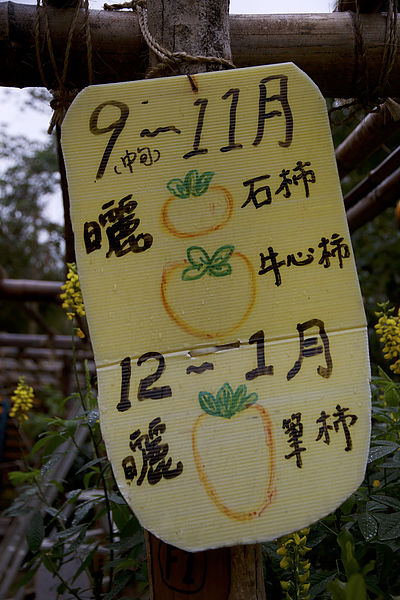 9~11月
(中旬)
曬 石柿
牛心柿
12~1月
曬 筆柿
F1